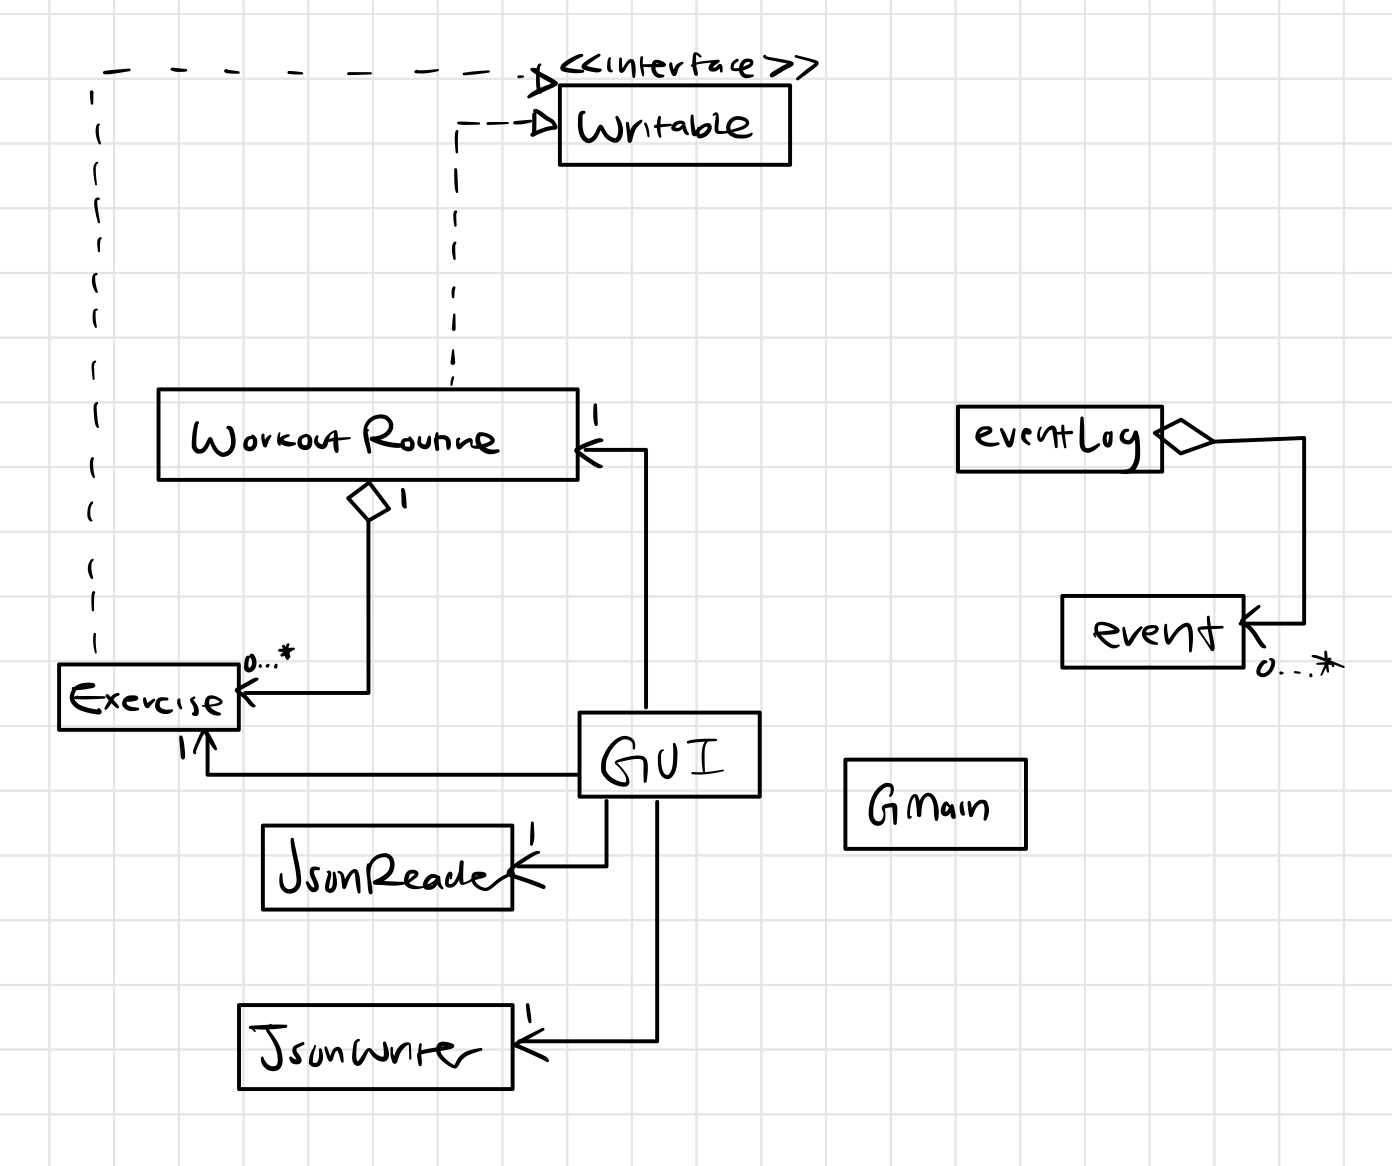 <<interface>>
Writable
Workout Routine
1
1
eventLog
event
0...*
0....*
Exercise
1
GUI
GMain
JsonReader
1
JsonWriter
1